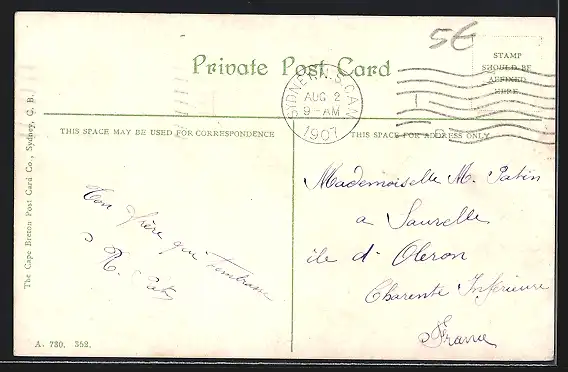 5€
Private Post Card
STAMP
SHOULD BE
AFFIXED
HERE
SYDNEY N.S. CAN
AUG 2
9-AM
1907
THIS SPACE MAY BE USED FOR CORRESPONDENCE
THIS SPACE FOR ADDRESS ONLY
Ton frère qui t'embrasse
R. Patin
Mademoiselle M. Patin
a Sauzelle
ile d'Oleron
Charente Inférieure
France
The Cape Breton Post Card Co., Sydney, C. B.
A. 730. 352.